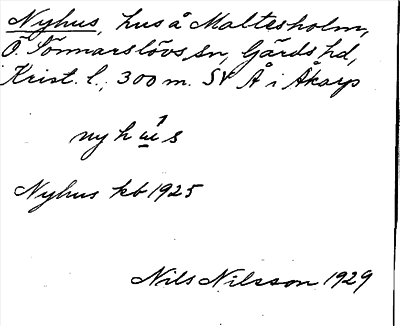 Nyhus, hus å Maltesholm,
Ö. Sönnarslövs sn, Gärds hd,
Krist. l., 300 m. SV Å i Åkarp
nyhu̱s
Nyhus kb 1925
Nils Nilsson 1929